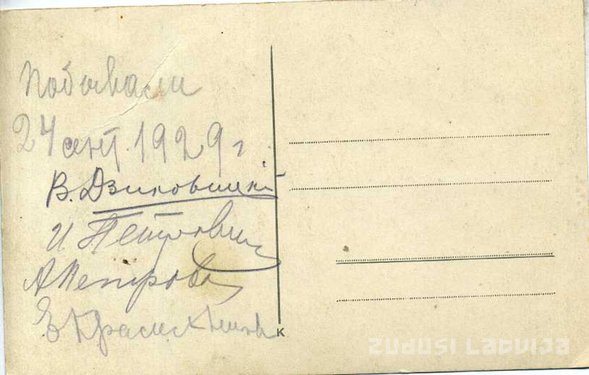 Побывали
24 сент. 1929 г
В. Дзиковицкий
И Петрович
А Петрова
К
ZUDUSI LATVIJA